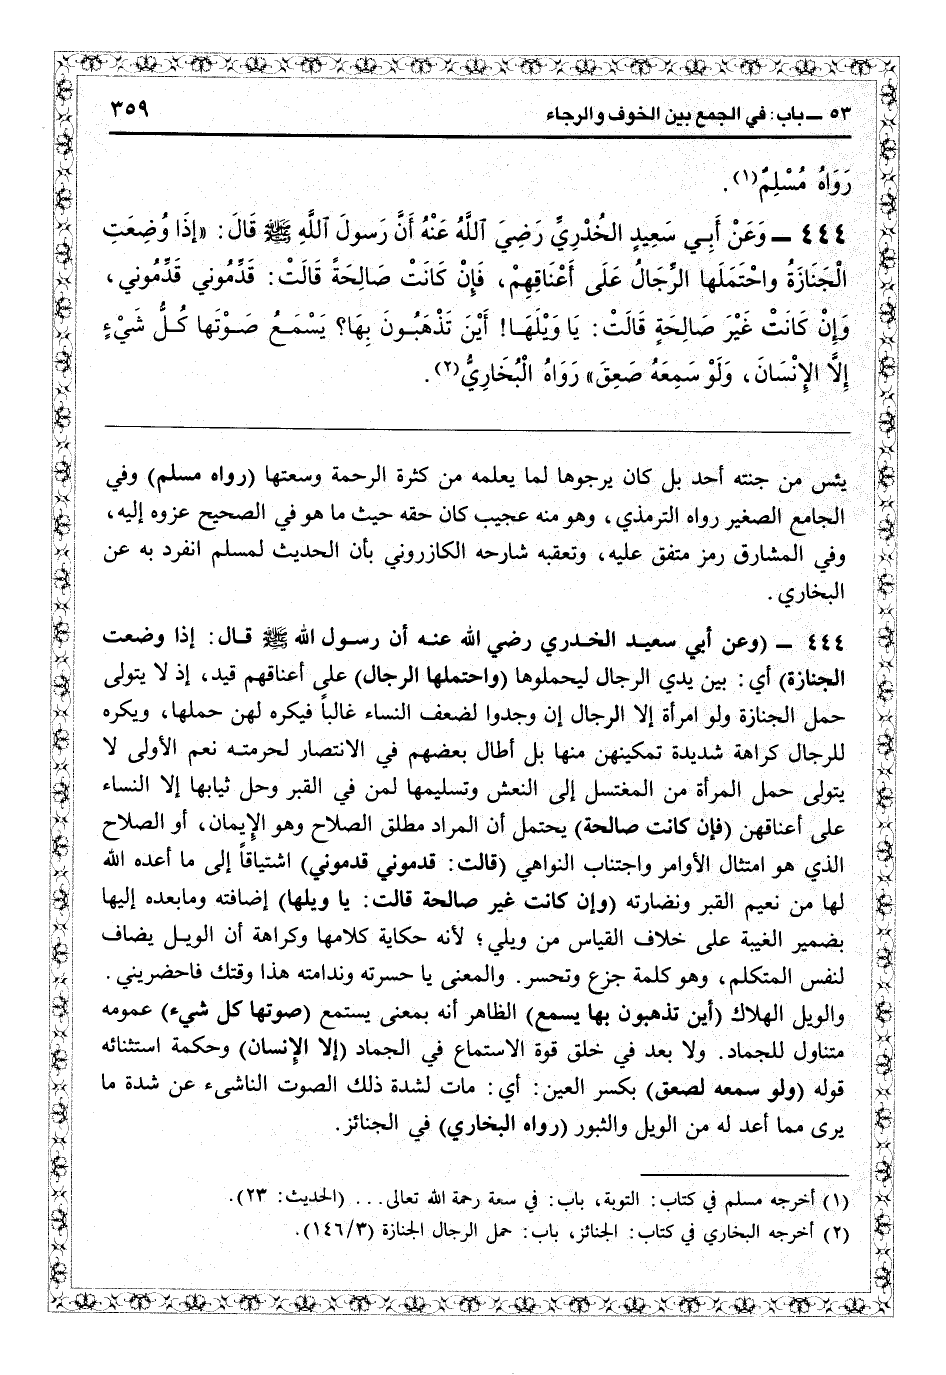 ٥٣ ـ باب: في الجمع بين الخوف والرجاء ٣٥٩
رَوَاهُ مُسْلِمٌ(١).
٤٤٤ ـ وَعَنْ أَبِي سَعِيدٍ الخُدْرِيِّ رَضِيَ اللَّهُ عَنْهُ أَنَّ رَسولَ اللَّهِ ﷺ قَالَ: «إذَا وُضِعَتِ
الْجَنَازَةُ واحْتَمَلَها الرِّجَالُ عَلَى أَعْنَاقِهِمْ، فَإنْ كَانَتْ صَالِحَةً قَالَتْ: قَدِّمُوني قَدِّمُوني،
وَإنْ كَانَتْ غَيْرَ صَالِحَةٍ قَالَتْ: يَا وَيْلَهَا! أَيْنَ تَذْهَبُونَ بِهَا؟ يَسْمَعُ صَوْتَها كُلُّ شَيْءٍ
إلَّا الإنْسَانَ، وَلَوْ سَمِعَهُ صَعِقَ» رَوَاهُ الْبُخَارِيُّ(٢).
يئس من جنته أحد بل كان يرجوها لما يعلمه من كثرة الرحمة وسعتها (رواه مسلم) وفي
الجامع الصغير رواه الترمذي، وهو منه عجيب كان حقه حيث ما هو في الصحيح عزوه إليه،
وفي المشارق رمز متفق عليه، وتعقبه شارحه الكازروني بأن الحديث لمسلم انفرد به عن
البخاري.
٤٤٤ ـ (وعن أبي سعيد الخدري رضي الله عنه أن رسول الله ﷺ قال: إذا وضعت
الجنازة) أي: بين يدي الرجال ليحملوها (واحتملها الرجال) على أعناقهم قيد، إذ لا يتولى
حمل الجنازة ولو امرأة إلا الرجال إن وجدوا لضعف النساء غالباً فيكره لهن حملها، ويكره
للرجال كراهة شديدة تمكينهن منها بل أطال بعضهم في الانتصار لحرمته نعم الأولى لا
يتولى حمل المرأة من المغتسل إلى النعش وتسليمها لمن في القبر وحل ثيابها إلا النساء
على أعناقهن (فإن كانت صالحة) يحتمل أن المراد مطلق الصلاح وهو الإيمان، أو الصلاح
الذي هو امتثال الأوامر واجتناب النواهي (قالت: قدموني قدموني) اشتياقاً إلى ما أعده الله
لها من نعيم القبر ونضارته (وإن كانت غير صالحة قالت: يا ويلها) إضافته ومابعده إليها
بضمير الغيبة على خلاف القياس من ويلي؛ لأنه حكاية كلامها وكراهة أن الويل يضاف
لنفس المتكلم، وهو كلمة جزع وتحسر. والمعنى يا حسرته وندامته هذا وقتك فاحضريني.
والويل الهلاك (أين تذهبون بها يسمع) الظاهر أنه بمعنى يستمع (صوتها كل شيء) عمومه
متناول للجماد. ولا بعد في خلق قوة الاستماع في الجماد (إلا الإنسان) وحكمة استثنائه
قوله (ولو سمعه لصعق) بكسر العين: أي: مات لشدة ذلك الصوت الناشىء عن شدة ما
يرى مما أعد له من الويل والثبور (رواه البخاري) في الجنائز.
(١) أخرجه مسلم في كتاب: التوبة، باب: في سعة رحمة الله تعالى... (الحديث: ٢٣).
(٢) أخرجه البخاري في كتاب: الجنائز، باب: حمل الرجال الجنازة (١٤٦/٣).